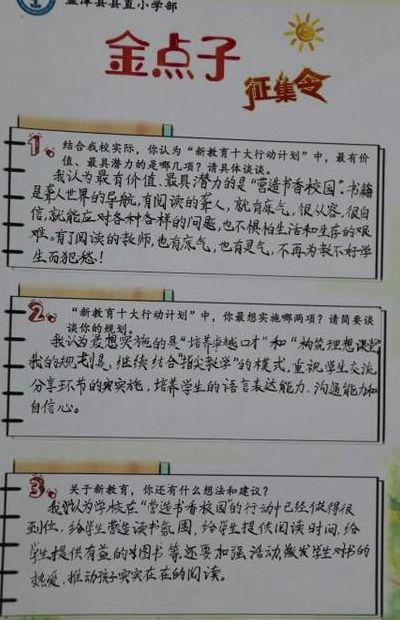 孟津县县直小学部
金点子
征集令
1. 结合我校实际，你认为“新教育十大行动计划”中，最有价
值、最具潜力的是哪几项？请具体谈谈。
我认为最有价值、最具潜力的是“营造书香校园”。书籍
是聋人世界的导航，有阅读的聋人，就有底气，很从容，很自
信，就能应对各种各样的问题，也不惧怕生活和生存的艰
难。有了阅读的教师，也有底气，也有灵气，不再为教不好学
生而犯愁！
2. “新教育十大行动计划”中，你最想实施哪两项？请简要谈
谈你的规划。
我认为最想实施的是“培养卓越口才”和“构筑理想课堂”
我的规划是，继续结合“指尖教学”的模式，重视学生交流
分享环节的实施，培养学生的语言表达能力、沟通能力和
自信心。
3. 关于新教育，你还有什么想法和建议？
我认为学校在“营造书香校园”的行动中已经做得很
到位，给学生营造读书氛围，给学生提供阅读时间，给
学生提供有益的图书等，还要加强活动，激发学生对书的
热爱，推动孩子实实在在的阅读。